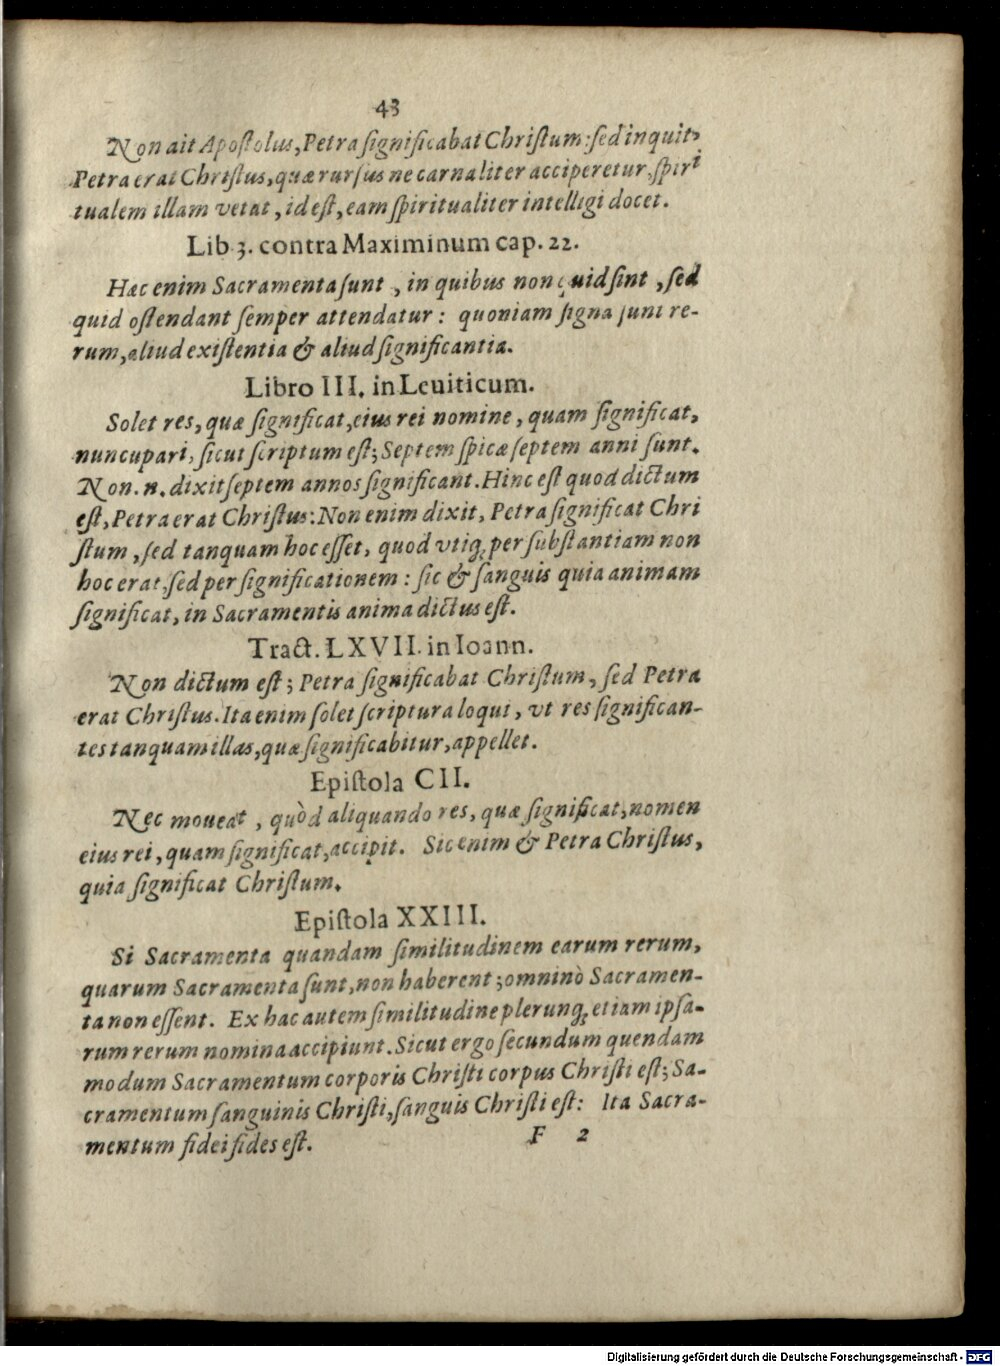 43
Non ait Apoſtolus, Petra ſignificabat Chriſtum: ſed inquit,
Petra erat Chriſtus, quæ rurſus ne carnaliter acciperetur, ſpiri
tualem illam vetat, id eſt, eam ſpiritualiter intelligi docet.
Lib 3. contra Maximinum cap. 22.
Hæc enim Sacramenta ſunt, in quibus non quid ſint, ſed
quid oſtendant ſemper attendatur: quoniam ſigna ſunt re-
rum, aliud exiſtentia & aliud ſignificantia.
Libro III. in Leuiticum.
Solet res, quæ ſignificat, eius rei nomine, quam ſignificat,
nuncupari, ſicut ſcriptum eſt; Septem ſpicæ ſeptem anni ſunt.
Non. n. dixit ſeptem annos ſignificant. Hinc eſt quod dictum
eſt, Petra erat Chriſtus: Non enim dixit, Petra ſignificat Chri
ſtum, ſed tanquam hoc eſſet, quod vtiq; per ſubſtantiam non
hoc erat, ſed per ſignificationem: ſic & ſanguis quia animam
ſignificat, in Sacramentis anima dictus eſt.
Tract. LXVII. in Ioann.
Non dictum eſt; Petra ſignificabat Chriſtum, ſed Petra
erat Chriſtus. Ita enim ſolet ſcriptura loqui, vt res ſignifican-
tes tanquam illas, quæ ſignificabitur, appellet.
Epiſtola CII.
Nec moueat, quòd aliquando res, quæ ſignificat, nomen
eius rei, quam ſignificat, accipit. Sic enim & Petra Chriſtus,
quia ſignificat Chriſtum.
Epiſtola XXIII.
Si Sacramenta quandam ſimilitudinem earum rerum,
quarum Sacramenta ſunt, non haberent; omninò Sacramen-
ta non eſſent. Ex hac autem ſimilitudine plerunq; etiam ipſa-
rum rerum nomina accipiunt. Sicut ergo ſecundum quendam
modum Sacramentum corporis Chriſti corpus Chriſti eſt; Sa-
cramentum ſanguinis Chriſti, ſanguis Chriſti eſt: Ita Sacra-
mentum fidei fides eſt.
F 2
Digitalisierung gefördert durch die Deutsche Forschungsgemeinschaft - DFG